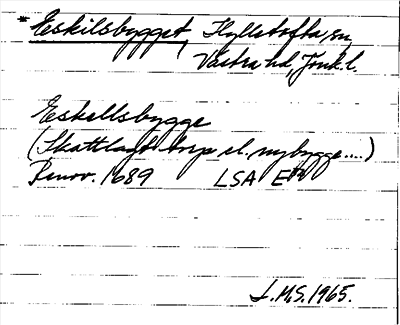 * Eskilsbygget, Hylletofta sn,
Västra hd, Jönk.l.
Eskellsbygge
(Skattlagdt torp el. nybygge....)
Renov. 1689 LSA E
J.M.S. 1965.